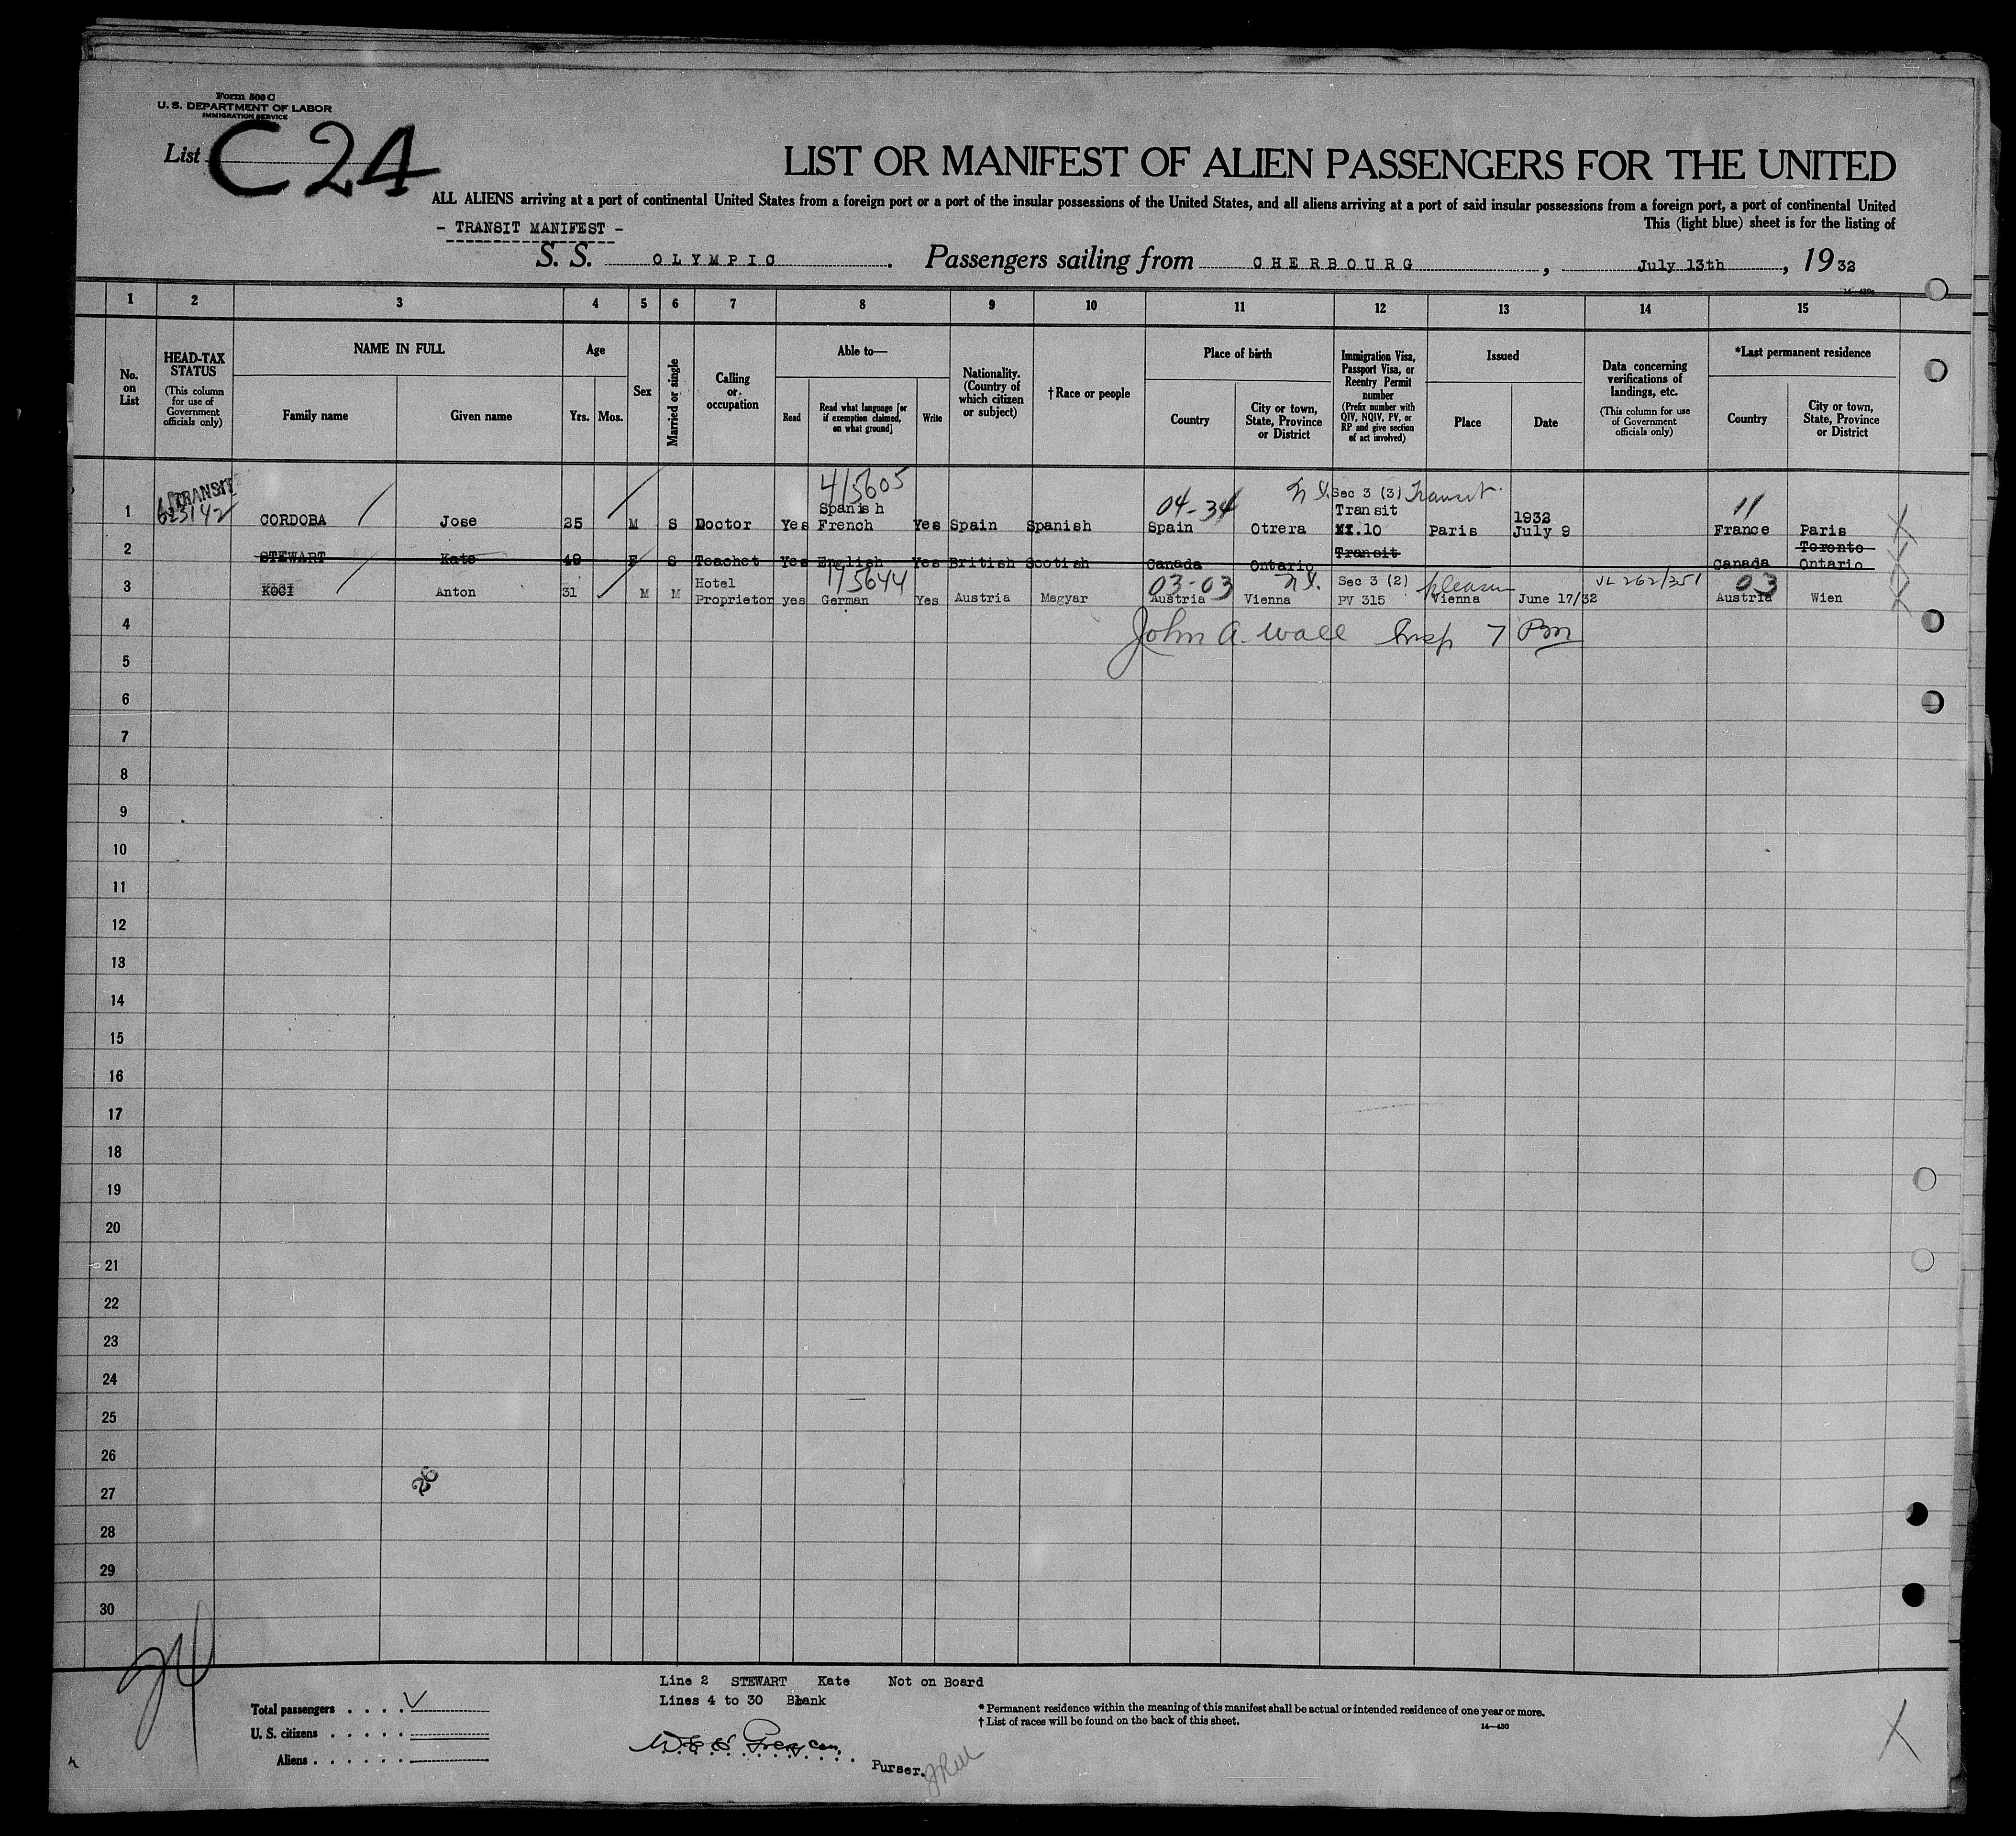 Form 500 C
U. S. DEPARTMENT OF LABOR
IMMIGRATION SERVICE
List C 24
LIST OR MANIFEST OF ALIEN PASSENGERS FOR THE UNITED
ALL ALIENS arriving at a port of continental United States from a foreign port or a port of the insular possessions of the United States, and all aliens arriving at a port of said insular possessions from a foreign port, a port of continental United
This (light blue) sheet is for the listing of
- TRANSIT MANIFEST -
S. S. OLYMPIC. Passengers sailing from CHERBOURG, July 13th, 1932
14—430
1 2 3 4 5 6 7 8 9 10 11 12 13 14 15
No. on List
HEAD-TAX STATUS
(This column for use of Government officials only)
NAME IN FULL
Family name
Given name
Age
Yrs. Mos.
Sex
Married or single
Calling or occupation
Able to—
Read
Read what language [or if exemption claimed, on what ground]
Write
Nationality. (Country of which citizen or subject)
†Race or people
Place of birth
Country
City or town, State, Province or District
Immigration Visa, Passport Visa, or Reentry Permit number
(Prefix number with QIV, NQIV, PV, or RP and give section of act involved)
Issued
Place
Date
Data concerning verifications of landings, etc.
(This column for use of Government officials only)
*Last permanent residence
Country
City or town, State, Province or District
TRANSIT
623142
4/5605
04-34
Sec 3 (3) Transit
11
Spanish
Transit
1932
1 CORDOBA Jose 25 M S Doctor Yes French Yes Spain Spanish Spain Otrera 10 Paris July 9 France Paris
Transit
Toronto
2 STEWART Kate 49 F S Teachet Yes English Yes British Scotish Canada Ontario Canada Ontario
Hotel
1/5644
03-03
Sec 3 (2) pleasure
VL 262/351
03
3 KOCI Anton 31 M M Proprietor yes German Yes Austria Magyar Austria Vienna PV 315 Vienna June 17/32 Austria Wien
4 John A. Wall Insp 7 Pm
5
6
7
8
9
10
11
12
13
14
15
16
17
18
19
20
21
22
23
24
25
26
26
27
28
29
30
24
Line 2 STEWART Kate Not on Board
Lines 4 to 30 Blank
Total passengers
U. S. citizens
Aliens
* Permanent residence within the meaning of this manifest shall be actual or intended residence of one year or more.
† List of races will be found on the back of this sheet.
14—430
Purser.